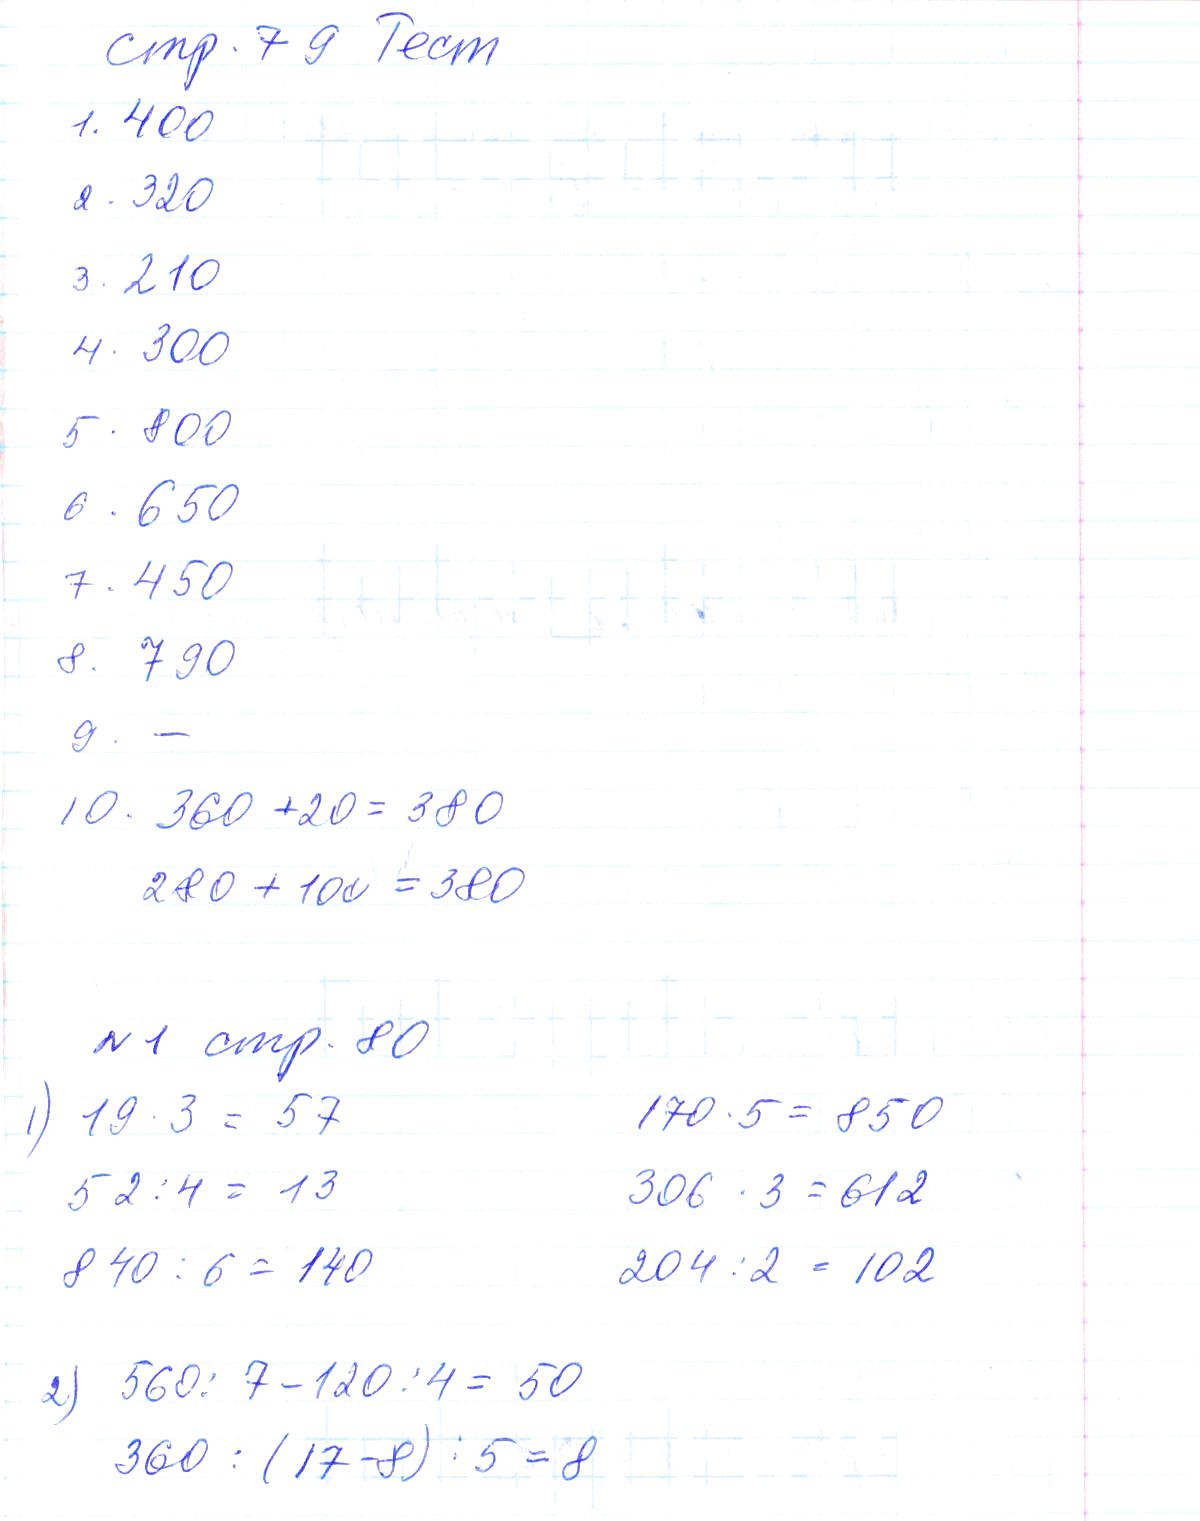 стр. 79 Тест
1. 400
2. 320
3. 210
4. 300
5. 800
6. 650
7. 450
8. 790
9. —
10. 360 + 20 = 380
280 + 100 = 380
№1 стр. 80
1) 19 · 3 = 57 170 · 5 = 850
52 : 4 = 13 306 · 3 = 612
840 : 6 = 140 204 : 2 = 102
2) 560 : 7 – 120 : 4 = 50
360 : (17 – 8) : 5 = 8